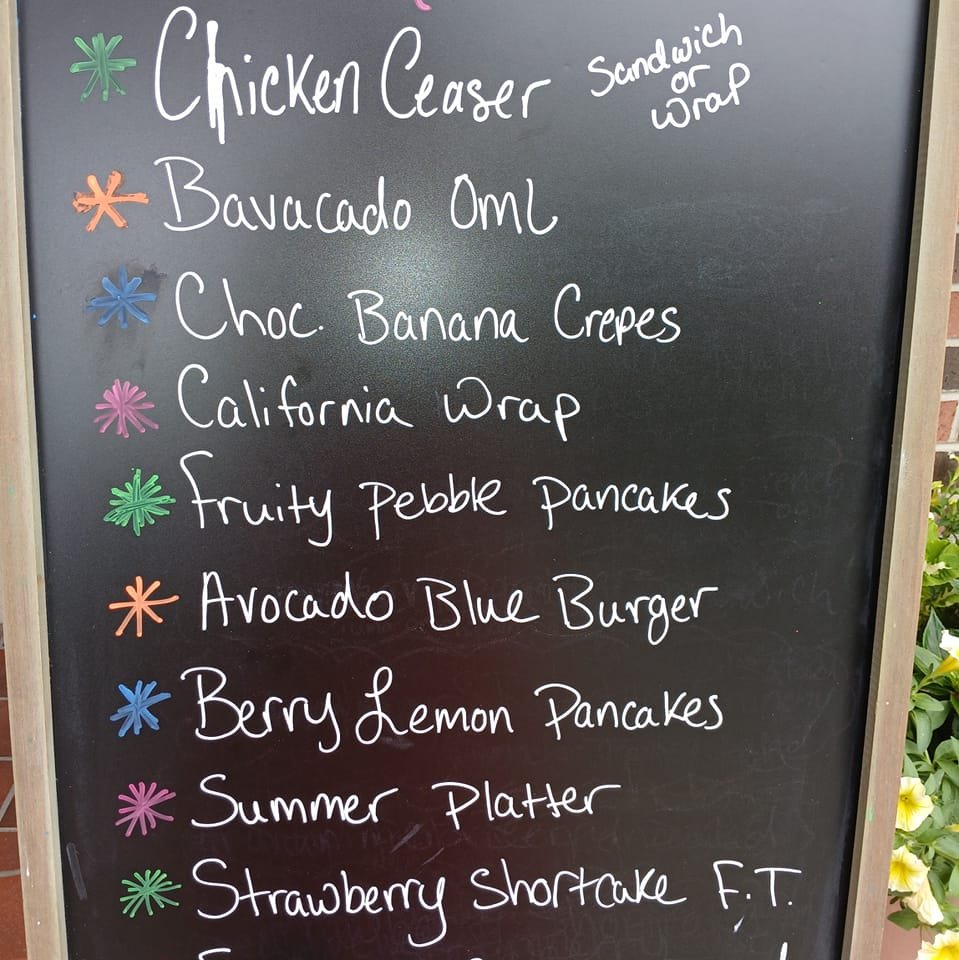 Chicken Ceaser Sandwich
or
Wrap
Bavacado Oml
Choc. Banana Crepes
California Wrap
Fruity Pebble Pancakes
Avocado Blue Burger
Berry Lemon Pancakes
Summer Platter
Strawberry Shortcake F.T.